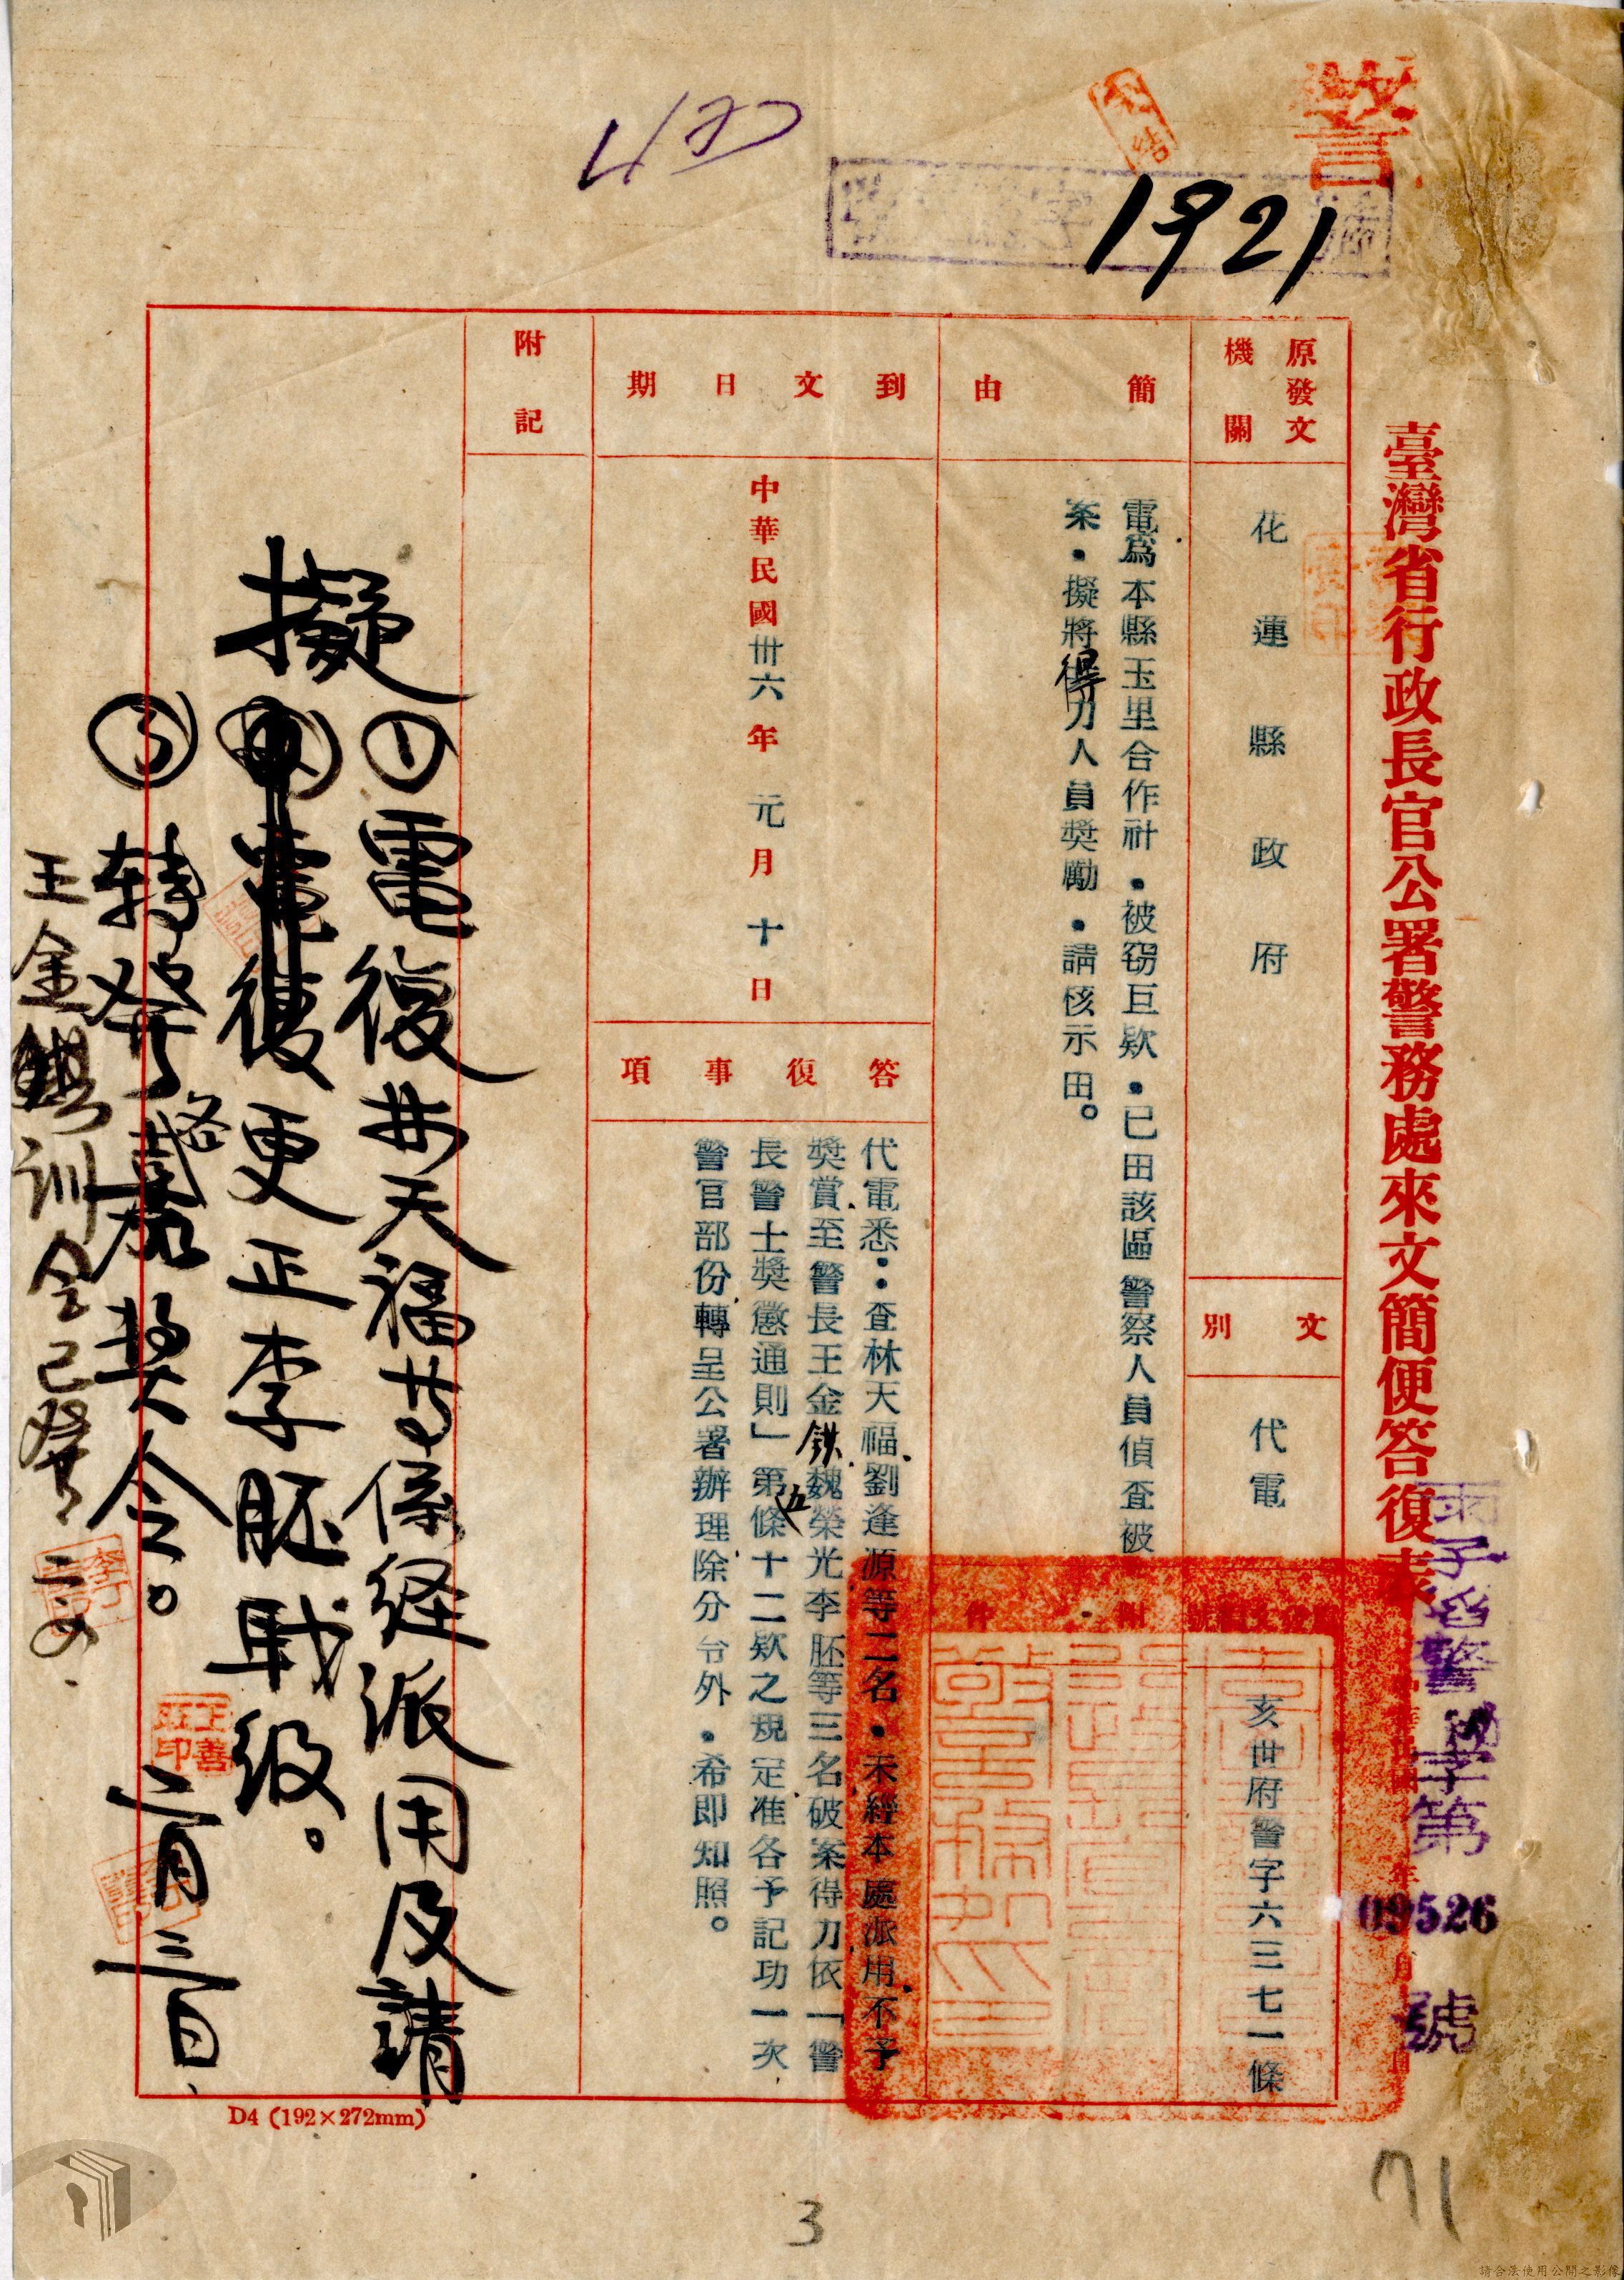 警
1921
臺灣省行政長官公署警務處來文簡便答復表
警 字第
09526
號
原發文機關
花蓮縣政府
文別
代電
亥世府警字六三七一條
簡由
電爲本縣玉里合作社．被窃巨欵．已田該區警察人員偵查被
案．擬將得力人員奬勵．請核示田。
到文日期
中華民國卅六年元月十日
答復事項
代電悉：查林天福劉逢源等二名．未經本處派用不予
奬賞至警長王金鉄魏榮光李胚等三名破案得力依「警
長警士奬懲通則」第五條十二欵之規定准各予記功一次
警官部份轉呈公署辦理除分令外．希即知照。
附記
擬
①電復林天福等係経派用及請
電復更正李胚职级。
③转發各嘉奬令。
二月三日
王金 训令已發 二
王善
印
D4 (192×272mm)
3
71
請合法使用公開之影像